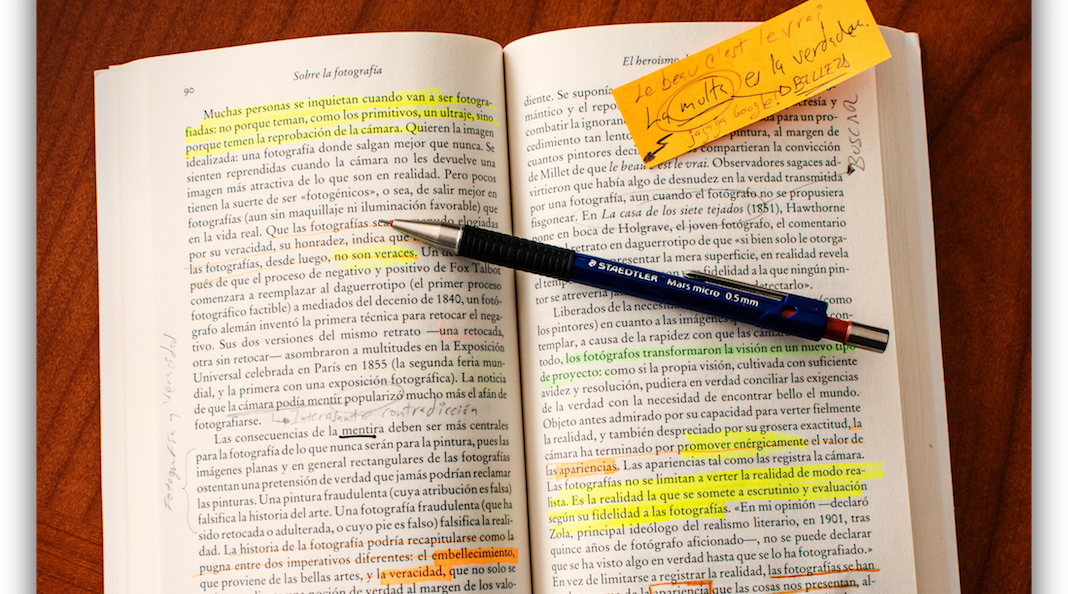 Sobre la fotografía
90
Muchas personas se inquietan cuando van a ser fotogra-
fiadas: no porque teman, como los primitivos, un ultraje, sino
porque temen la reprobación de la cámara. Quieren la imagen
idealizada: una fotografía donde salgan mejor que nunca. Se
sienten reprendidas cuando la cámara no les devuelve una
imagen más atractiva de lo que son en realidad. Pero pocos
tienen la suerte de ser «fotogénicos», o sea, de salir mejor en
fotografías (aun sin maquillaje ni iluminación favorable) que
en la vida real. Que las fotografías sean menudo elogiadas
por su veracidad, su honradez, indica que
las fotografías, desde luego, no son veraces. Un
pués de que el proceso de negativo y positivo de Fox Talbot
comenzara a reemplazar al daguerrotipo (el primer proceso
fotográfico factible) a mediados del decenio de 1840, un fotó-
grafo alemán inventó la primera técnica para retocar el nega-
tivo. Sus dos versiones del mismo retrato —una retocada,
otra sin retocar— asombraron a multitudes en la Exposición
Universal celebrada en París en 1855 (la segunda feria mun-
dial, y la primera con una exposición fotográfica). La noticia
de que la cámara podía mentir popularizó mucho más el afán de
fotografiarse.
Interesante contradicción
Las consecuencias de la mentira deben ser más centrales
para la fotografía de lo que nunca serán para la pintura, pues las
imágenes planas y en general rectangulares de las fotografías
ostentan una pretensión de verdad que jamás podrían reclamar
las pinturas. Una pintura fraudulenta (cuya atribución es falsa)
falsifica la historia del arte. Una fotografía fraudulenta (que ha
sido retocada o adulterada, o cuyo pie es falso) falsifica la reali-
dad. La historia de la fotografía podría recapitularse como la
pugna entre dos imperativos diferentes: el embellecimiento,
que proviene de las bellas artes, y la veracidad, que no solo se
Fotografía y veracidad
El heroísmo
Le beau c'est le vrai
La multa es la verdad
Google! OBILLETS
BUSCAR
diente. Se suponía
mántico y el repo
combatir la ignoran
cedimiento tan lento
cuantos pintores deci
de Millet de que le beau c'est le vrai. Observadores sagaces ad-
virtieron que había algo de desnudez en la verdad transmitida
por una fotografía, aun cuando el fotógrafo no se propusiera
fisgonear. En La casa de los siete tejados (1851), Hawthorne
pone en boca de Holgrave, el joven fotógrafo, el comentario
retrato en daguerrotipo de que «si bien solo le otorga-
presentar la mera superficie, en realidad revela
el temp fidelidad a la que ningún pin-
tor se atrevería detectarlo».
STAEDTLER Mars micro 0.5mm
Liberados de la necesi (como
los pintores) en cuanto a las imágenes con-
templar, a causa de la rapidez con que las
todo, los fotógrafos transformaron la visión en un nuevo tipo
de proyecto: como si la propia visión, cultivada con suficiente
avidez y resolución, pudiera en verdad conciliar las exigencias
de la verdad con la necesidad de encontrar bello el mundo.
Objeto antes admirado por su capacidad para verter fielmente
la realidad, y también despreciado por su grosera exactitud, la
cámara ha terminado por promover enérgicamente el valor de
las apariencias. Las apariencias tal como las registra la cámara.
Las fotografías no se limitan a verter la realidad de modo rea-
lista. Es la realidad la que se somete a escrutinio y evaluación
según su fidelidad a las fotografías. «En mi opinión —declaró
Zola, principal ideólogo del realismo literario, en 1901, tras
quince años de fotógrafo aficionado—, no se puede declarar
que se ha visto algo en verdad hasta que se lo ha fotografiado.»
En vez de limitarse a registrar la realidad, las fotografías se han
apariencia que las cosas nos presentan, al-